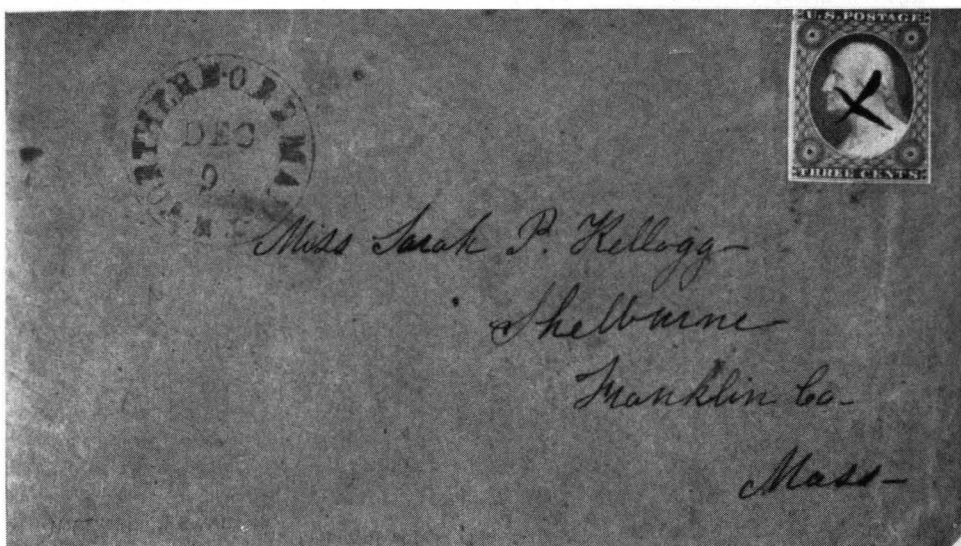 U.S. POSTAGE
THREE CENTS
DEC
9
Miss Sarah P. Kellogg-
Shelburne
Franklin Co-
Mass-